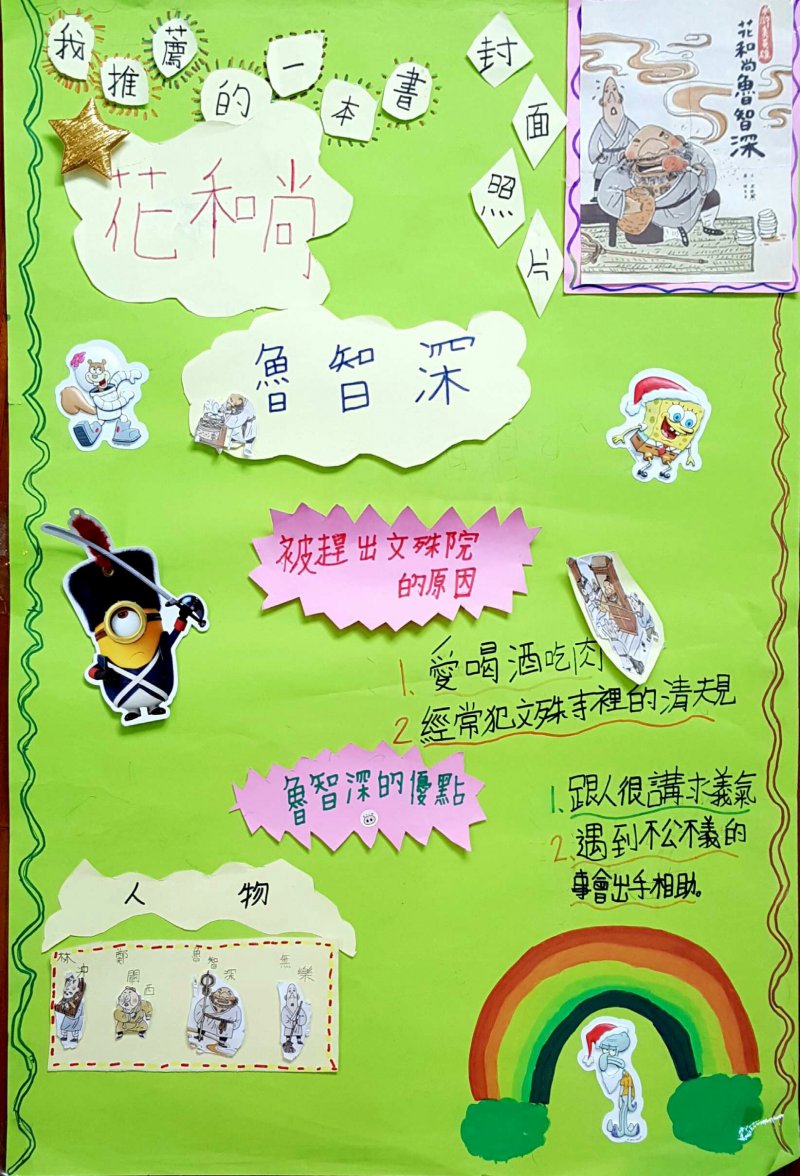 我推薦的一本書
封面照片
水滸裏英雄
花和尚魯智深
花和尚
魯智深
被趕出文殊院
的原因
1. 愛喝酒吃肉
2. 經常犯文殊寺裡的清規
魯智深的優點
1. 跟人很講求義氣
2. 遇到不公不義的
事會出手相助。
人物
林冲
鄭關西
魯智深
無樂